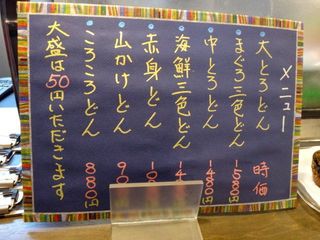 メニュー
大とろどん 時価
まぐろ三色どん 1580
中とろどん 1480
海鮮三色どん
赤身どん
山かけどん
ころころどん 880円
大盛は50円いただきます